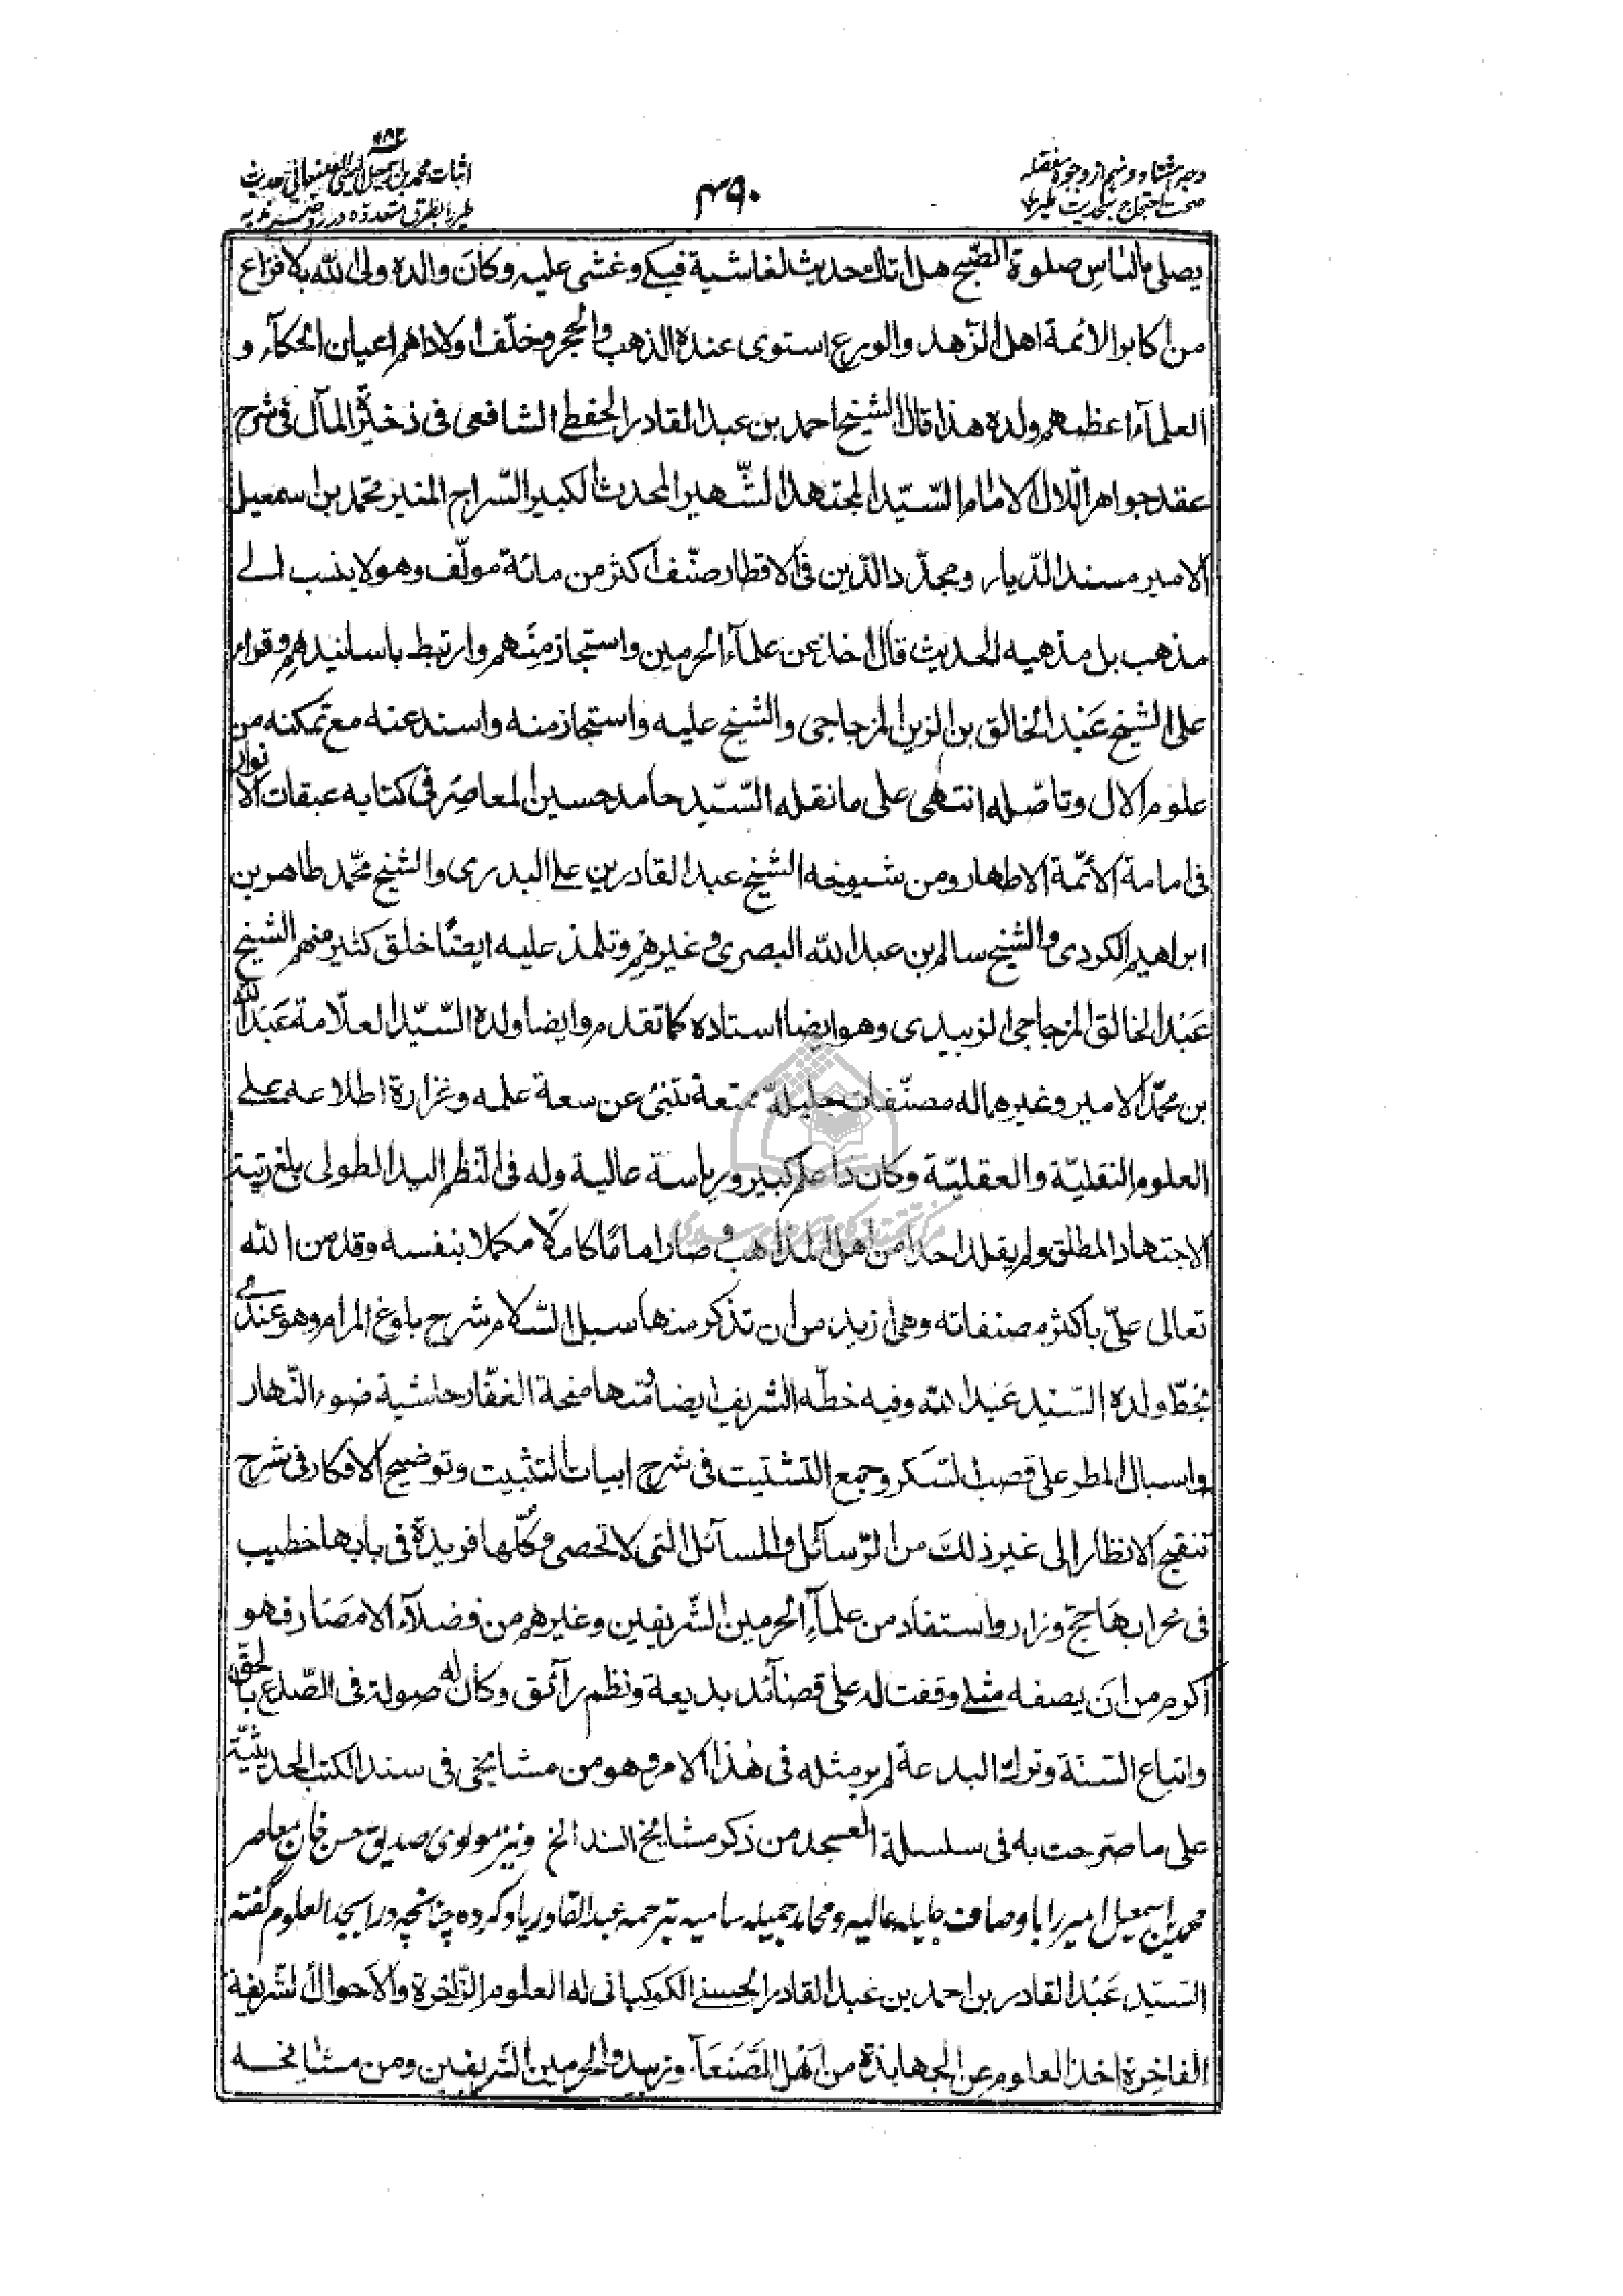 وجه هشتاد و نهم از وجوه مفصله
صحت احتجاج بحديث طير
٤٩٠
اثبات محمد بن اسمعيل اليمنى الصنعانى حديث
طير را بطرق متعدده در روضه نديه
يصلى بالناس صلوة الصّبح هل اتاك حديث الغاشية فبكى وغشى عليه وكان والده ولى الله بلا نزاع
من اكابر الائمة اهل الزّهد والورع استوى عنده الذهب والحجر وخلّف اولادا هم اعيان الحكمآء و
العلمآء اعظمهم ولده هذا قال الشيخ احمد بن عبد القادر الحفظى الشافعى فى ذخيرة المآل فى شرح
عقد جواهر اللآل الامام السّيّد المجتهد الشّهير المحدث الكبير السّراج المنير محمّد بن اسمعيل
الامير مسند الديار ومجدّد الدّين فى الاقطار صنّف اكثر من مائة مولّف وهو لا ينسب الى
مذهب بل مذهبه الحديث قال اخذ عن علمآء الحرمين واستجاز منهم وارتبط باسانيدهم وقراء
على الشيخ عبد الخالق بن الزين المزجاجى والشيخ عليه واستجاز منه واسند عنه مع تمكنه من
علوم الال وتاصّله انتهى على ما نقله السّيّد حامد حسين المعاصر فى كتابه عبقات الانوار
فى امامة الائمّة الاطهار ومن شيوخه الشيخ عبد القادر بن على البدرى والشيخ محمّد طاهر بن
ابراهيم الكردى والشيخ سالم بن عبد الله البصرى وغيرهم وتلمذ عليه ايضًا خلق كثير منهم الشيخ
عبد الخالق المزجاجى الزبيدى وهو ايضا استاده كما تقدم وايضا ولده السّيّد العلّامة عبد الله
بن محمّد الامير وغيرهما له مصنّفات جليلة ممتعة تنبئ عن سعة علمه وغزارة اطلاعه على
العلوم النقليّة والعقليّة وكان ذا علم كبير ورياسة عالية وله فى النظم اليد الطولى بلغ رتبة
الاجتهاد المطلق ولم يقلد احدا من اهل المذاهب وصار امامًا كاملًا مكملا بنفسه وقد من الله
تعالى علىّ باكثر مصنفاته وهى ازيد من ان تذكر منها سبل السّلام شرح بلوغ المرام وهو عندى
بخطّ ولده السّيد عبد الله وفيه خطّه الشريف ايضا ومنها منحة الغفّار حاشية ضوء النّهار
واسبال المطر على قصب السّكر وجمع التشتيت فى شرح ابيات التثبيت وتوضيح الافكار فى شرح
تنقيح الانظار الى غير ذلك من الرّسآئل والمسآئل التى لا تحصى وكلّها فريدة فى بابها خطيب
فى محرابها حجّ وزار واستفاد من علمآء الحرمين الشّريفين وغيرهم من فضلآء الامصار فهو
اكرم من ان يصفه مثلى وقفت له على قصائد بديعة ونظم رآئق وكان له صولة فى الصّدع بالحقّ
واتباع السّنّة وترك البدعة لم ير مثله فى هذا الامر وهو من مشايخى فى سند الكتب الحديثيّة
على ما صرّحت به فى سلسلة العسجد من ذكر مشايخ السند الخ ونيز مولوى صديق حسن خان معاصر
محمد بن اسمعيل امير را باوصاف جليله عاليه ومحامد جميله ساميه بترجمه عبد القادر ياد كرده چنانچه در ابجد العلوم گفته
السّيّد عبد القادر بن احمد بن عبد القادر الحسنى الكوكبانى له العلوم الزّاخرة والاحوال الشّريفة
الفاخرة اخذ العلوم عن الجهابذة من اهل الصّنعآء وزبيد والحرمين الشّريفين ومن مشايخه